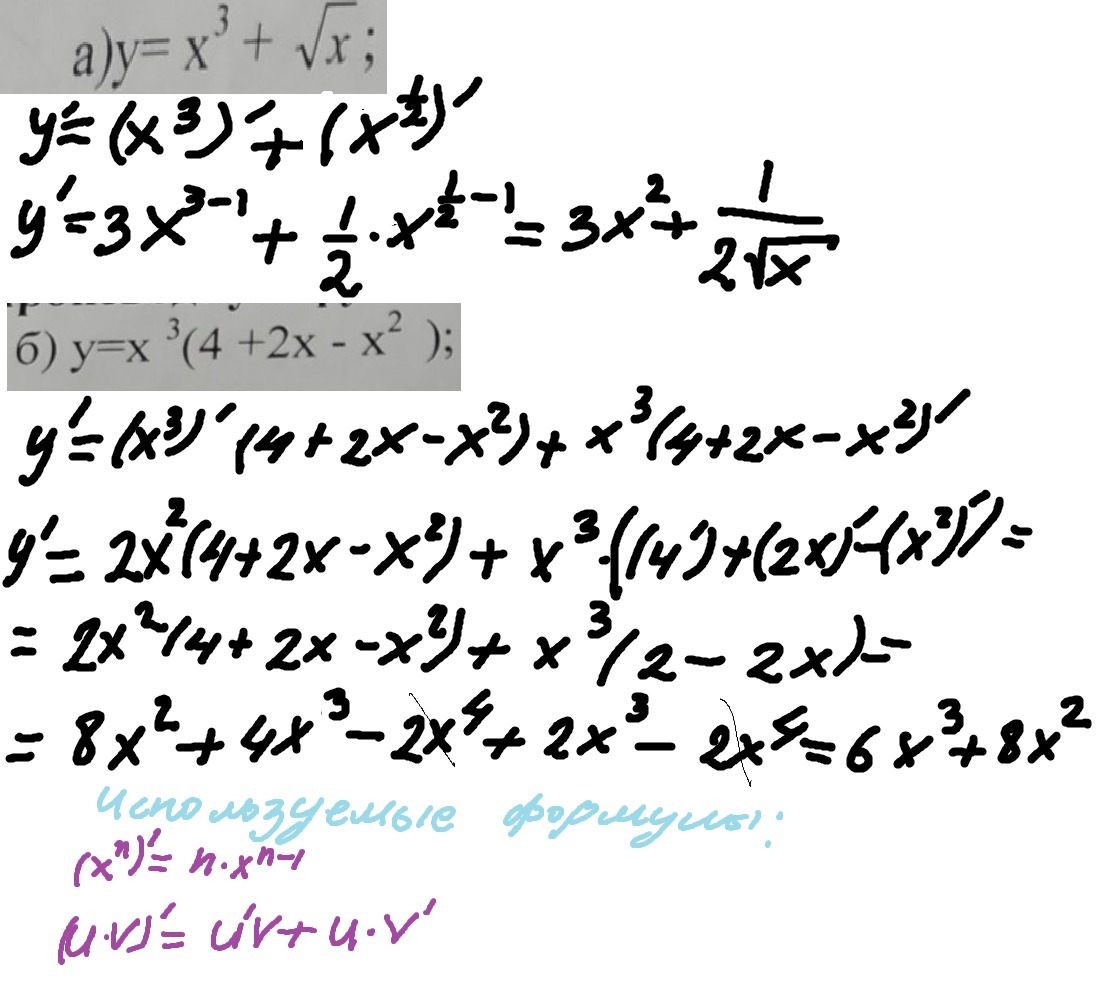 а)y= x³ + √x ;
y'=(x³)'+(x^½)'
y'=3x³⁻¹+ 1/2·x^(½-1)= 3x²+ 1/(2√x)
б) y=x ³(4 +2x - x² );
y'=(x³)'(4+2x-x²)+ x³(4+2x-x²)'
y'= 2x²(4+2x-x²)+ x³·((4')+(2x)'-(x²)')=
= 2x²(4+2x-x²)+ x³(2-2x)=
= 8x²+4x³-2x⁴+2x³-2x⁴=6x³+8x²
Используемые формулы:
(xⁿ)'= n·xⁿ⁻¹
(u·v)'= u'v+u·v'